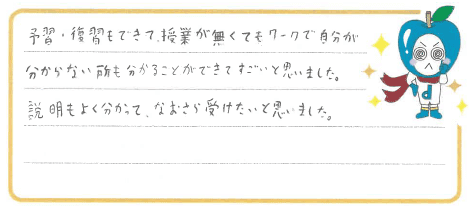 予習・復習もできて、授業が無くてもワークで自分が
分からない所も分かることができてすごいと思いました。
説明もよく分かって、なおさら受けたいと思いました。
d